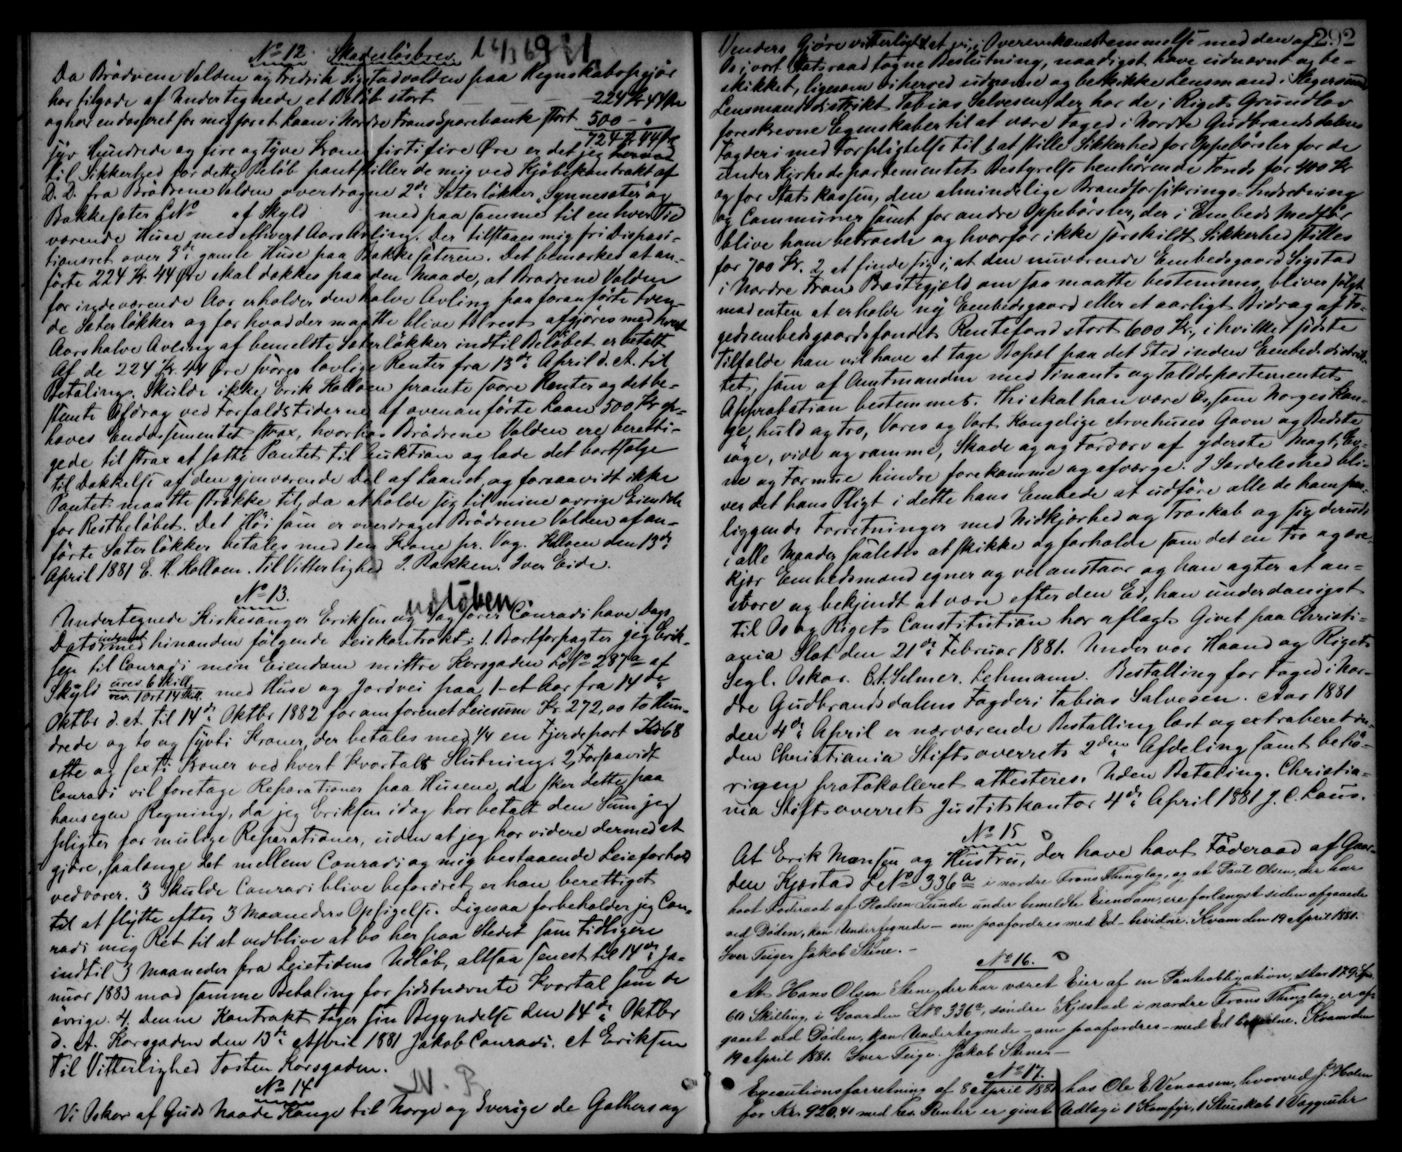 No 12. Skadesløsbrev 14/3 69
Da Brødrene Valden og Fredrik Sigstadvolden paa Regnskabsopgjør
har tilgode af Undertegnede et Beløb stort — — — 224 Kr 44 Øre
og har endosseret for mig for et Laan i Nordre Frons Sparebank stort 500 - "
724 Kr 44 Øre
syv Hundrede og fire og tyve Kroner firti fire Øre er det jeg herved
til Sikkerhed for dette Beløb pantstiller de mig ved Kjøbekontrakt af
D. D. fra Brødrene Valden overdragne 2de Sæterløkker, Synnesæter og
Bakkesæter LNo af Skyld med paa samme til enhver Tid
værende Huse med ethvert Aars Avling. Der tilstaaes mig fri Disposi-
tionsret over 3de gamle Huse paa Bakkesæteren. Det bemærkes at an-
førte 224 Kr 44 Øre skal dækkes paa den Maade, at Brødrene Valden
for indeværende Aar erholder den halve Avling paa foranførte tven-
de Sæterløkker og for hvad der maatte blive til Rest afgjøres med hvert
Aars halve Avling af bemeldte Sæterløkker indtil Beløbet er betalt
Af de 224 Kr. 44 Øre svares lovlige Renter fra 13de April d. A. til
Betaling. Skulde ikke Erik Kolloen præmte svare Renter og det be-
stemte Afdrag ved Forfaldstiderne af ovenanførte Laan 500 Kr op-
hæves Endossementet strax, hvorhos Brødrene Valden ere beretti-
gede til strax at sætte Pantet til Auktion og lade det bortsælge
til Dækkelse af den gjenværende Del af Laanet, og forsaavidt ikke
Pantet maatte strække til, da at holde sig til mine øvrige Eiendele
for Restbeløbet. Det Høi som er overdraget Brødrene Valden af an-
førte Sæterløkker betales med 1 en Krone pr. Vog. Kolloen den 13de
April 1881 E. H. Kolloen. Til Vitterlighed I. Bakken. Iver Eide.
No 13. udløben
Undertegnede Kirkesanger Eriksen og Sagfører Conradi have Dags
Dato indgaaet med hinanden følgende Leiekontrakt: 1. Bortforpagter jeg Erik-
sen til Conradi min Eiendom mittre Korsgaden LNo 287a af
Skyld urev. 6 Skill. rev. 1 Ort 14 Skill. med Huse og Jordvei paa 1-et Aar fra 14de
Oktbr d. A. til 14de Oktbr 1882 for om forenet Leiesum Kr 272,00 to Hun-
drede og to og syvti Kroner, der betales med 1/4 en Fjerdepart Kr 68
otte og sexti Kroner ved hvert Kvartals Slutning. 2, Forsaavidt
Conradi vil foretage Reparationer paa Husene, da sker dette paa
hans egen Regning, da jeg Eriksen idag har betalt den Sum jeg
pligter for mulige Reparationer, uden at jeg har videre dermed at
gjøre, saalænge det mellem Conradi og mig bestaaende Leieforhold
vedvarer. 3 Skulde Conradi blive befordret, er han berettiget
til at flytte efter 3 Maaneders Opsigelse. Ligesaa forbeholder jeg Con-
radi mig Ret til at vedblive at bo her paa Stedet som tidligere
indtil 3 Maaneder fra Leietidens Udløb, altsaa senest til 14de Ja-
nuar 1883 mod samme Betaling for sidstnævnte Kvartal som de
øvrige. 4, Denne Kontrakt tager sin Begyndelse den 14de Oktbr
d. A. Korsgaden den 13de April 1881 Jakob Conradi. A Eriksen
Til Vitterlighed Torsten Korsgaden.
No 14
Vi Oskar af Guds Naade Konge til Norge og Sverige de Gothers og
292
Venders Gjøre vitterligt at vi, i Overensstemmelse med den af
Os i vort Statsraad tagne Beslutning, naadigst have udnævnt og be-
skikket, ligesom vi herved udnævne og beskikke Lensmand i Egersund
Lensmandsdistrikt Tobias Salvesen, der har de i Rigets Grundlov
foreskrevne Egenskaber til at være Foged i Nordre Gudbrandsdalens
Fogderi med Forpligtelse til 1 at stille Sikkerhed for Oppebørsler for de
under Kirkedepartementets Bestyrelse henhørende Fonds for 400 Kr
og for Statskassen, den almindelige Brandforsikrings-Indretning
og Communer samt for andre Oppebørsler, der i Embeds Medfør
blive ham betroede og hvorfor ikke særskildt Sikkerhed stilles
for 700 Kr. 2, at finde sig i, at den nuværende Embedsgaard Sigstad
i Nordre Frons Præstegjeld om saa maatte bestemmes, bliver solgt
mod enten at erholde ny Embedsgaard eller et aarligt Bidrag af Fo-
gedembedsgaardsfondets Rentefond stort 600 Kr, i hvilket sidste
Tilfælde han vil have at tage Bopæl paa det Sted inden Embedsdistrik-
tet, som af Amtmanden med Finants og Tolddepartementets
Approbation bestemmes. Thi skal han være Os som Norges Kon-
ge, huld og tro, Vores og Vort Kongelige Arvehuses Gavn og Bedste
søge, vide og ramme, Skade og og Fordærv af yderste Magt, Ev-
ne og Formue hindre forekomme og afværge. I Særdeleshed bli-
ver det hans Pligt i dette hans Embede at udføre alle de ham paa-
liggende Forretninger med Nidkjærhed og Troskab og sig derudi
i alle Maader saaledes at skikke og forholde som det en tro og ære-
kjær Embedsmand egner og vel anstaar og han agter at an-
svare og bekjendt at være efter den Ed, han underdanigst
til Os og Rigets Constitution har aflagt. Givet paa Christi-
ania Slot den 21de Februar 1881. Under vor Haand og Rigets
Segl. Oskar. C. A. Selmer. Lehmann. Bestalling for Foged i Nor-
dre Gudbrandsdalens Fogderi Tobias Salvesen. Aar 1881
den 4de April er nærværende Bestalling læst og extraheret i
den Christiania Stiftsoverrets 2den Afdeling samt behø-
rigen protokolleret attesteres. Uden Betaling. Christia-
nia Stiftsoverrets Justitskontor 4de April 1881 J. C. Laus.
No 15
At Erik Monsen og Hustru, der have havt Føderaad af Gaar-
den Kjorstad LNo 336a i nordre Frons Thinglag, og at Paul Olsen, der har
havt Føderaad af Pladsen Lunde under bemeldte Eiendom, ere forlængst siden afgaaede
ved Døden, kan Undertegnede — om paafordres med Ed bevidne. Kvam den 19 April 1881.
Iver Teige Jakob Stene. —
No 16.
At Hans Olsen Stene, der har været Eier af en Pantobligation, stor 129 Spd
60 Skilling, i Gaarden LNo 336a, søndre Kjorstad i nordre Frons Thinglag, er af-
gaaet ved Døden, kan Undertegnede — om paafordres — med Ed bevidne. Kvam den
19 April 1881. Iver Teige. Jakob Stene. —
No 17.
Executionsforretning af 8 April 1881 hos Ole E. Venaasen, hvorved J. Holen
for Kr. 920.40 med lov. Renter er givet Udlæg i 1 Komfyr, 1 Stueskab 1 Væguhr